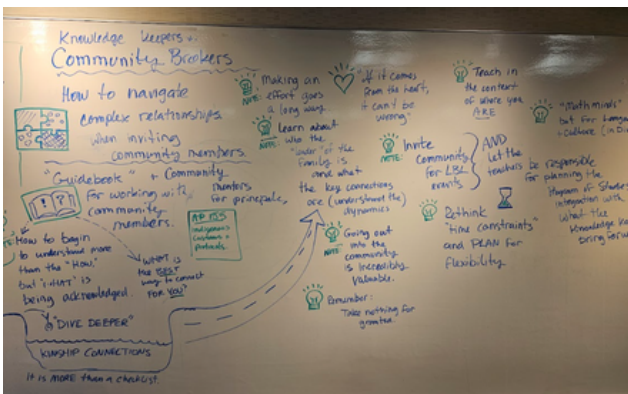 Knowledge Keepers +
Community Brokers
How to navigate
complex relationships
when inviting
community members.
"Guidebook" + Community
members
for working with
for principals,
community
members.
How to begin
to understand more
than the "How,"
but "WHAT" is
being acknowledged.
WHAT is
the BEST
way to connect
FOR YOU?
AP 155
Indigenous
Customs +
Protocols
"DIVE DEEPER"
KINSHIP CONNECTIONS
It is MORE than a checklist.
NOTE:
Making an
effort goes
a long way.
NOTE:
Learn about
who the
of the
Family is
and what
the key connections
are (understand the)
dynamics
NOTE:
Going out
into the
community
is incredibly
valuable.
Remember:
Take nothing for
granted.
"If it comes
from the heart,
it can't be
wrong"
NOTE:
Invite
community
for LBL
events
AND
let the
teachers be responsible
for planning the
of Student
integration with
what the
Knowledge
bring forward
Rethink
"time constraints"
and PLAN for
flexibility.
Teach in
the context
of where you
ARE
"Math minds"
but for
+ Culture